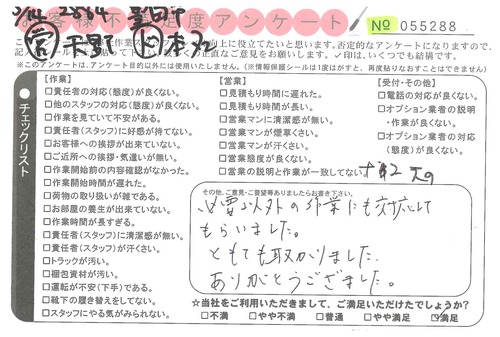 お客様不満足度アンケート
No 055288
※このアンケートは、アンケート目的以外には使用いたしません。(※情報保護シールは1度はがすと、再度貼りなおすことはできません)
チェックリスト
【作業】
□責任者の対応(態度)が良くない。
□他のスタッフの対応(態度)が良くない。
□作業を見ていて不安がある。
□責任者(スタッフ)に好感が持てない。
□お客様への挨拶が出来ていない。
□ご近所への挨拶・気遣いが無い。
□作業開始前の内容確認がなかった。
□作業開始時間が遅れた。
□荷物の取り扱いが雑である。
□お部屋の養生が出来ていない。
□作業時間が長すぎる。
□責任者(スタッフ)に清潔感が無い。
□責任者(スタッフ)が汗くさい。
□トラックが汚い。
□梱包資材が汚い。
□運転が不安(下手)である。
□靴下の履き替えをしてない。
□スタッフにやる気がみられない。
【営業】
□見積もり時間に遅れた。
□見積もり時間が長い。
□営業マンに清潔感が無い。
□営業マンが煙草くさい。
□営業マンが汗くさい。
□営業態度が良くない。
□営業の説明と作業が一致してない。
【受付・その他】
□電話の対応が良くない。
□オプション業者の説明・作業が良くない。
□オプション業者の対応(態度)が良くない。
その他、ご意見・ご要望等ありましたらお書き下さい。
必要以外の作業にも対応して
もらいました。
とても助かりました。
ありがとうございました。
☆当社をご利用いただきまして、ご満足いただけたでしょうか?
□不満 □やや不満 □普通 □やや満足 ☑満足